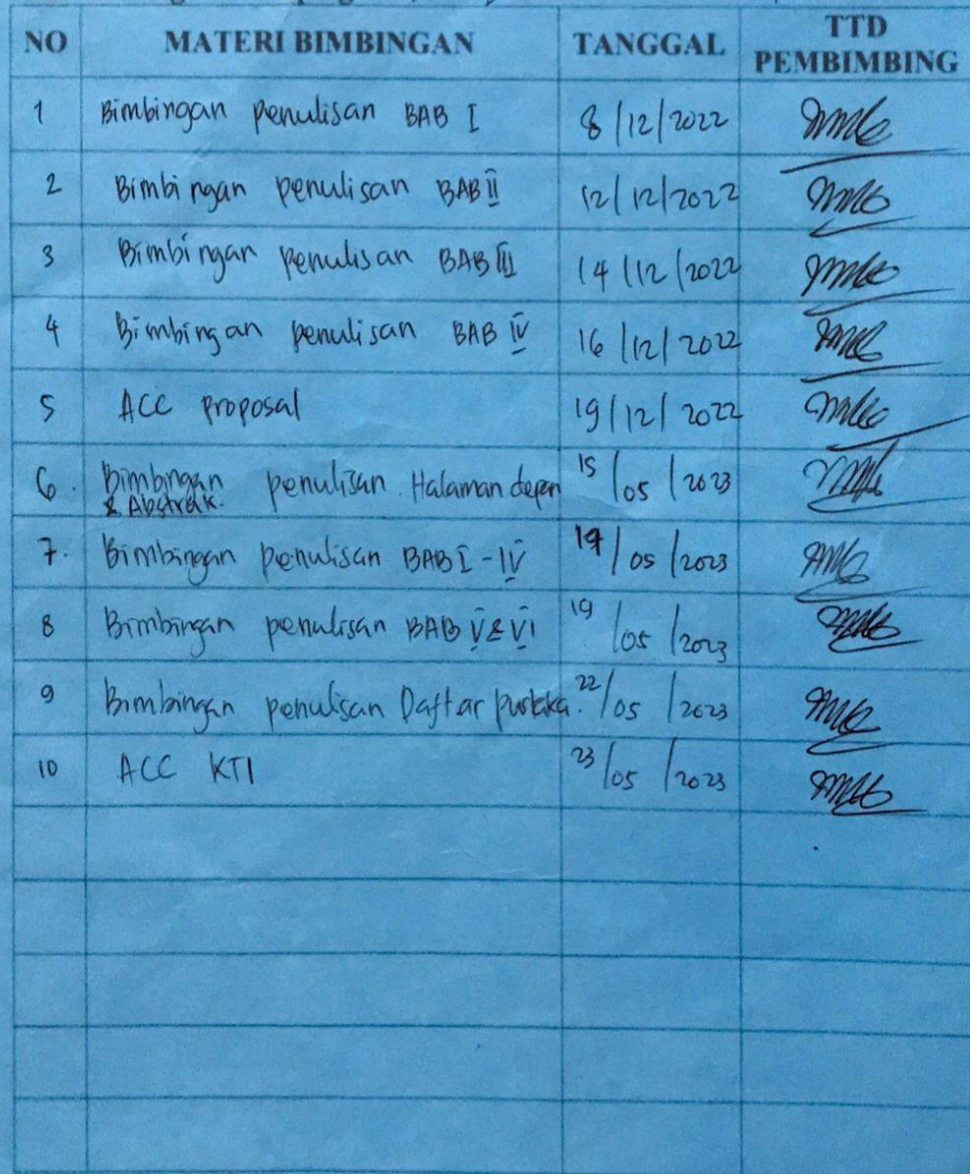 NO MATERI BIMBINGAN TANGGAL TTD PEMBIMBING
1 Bimbingan penulisan BAB I 8/12/2022
2 Bimbingan penulisan BAB II 12/12/2022
3 Bimbingan penulisan BAB III 14/12/2022
4 Bimbingan penulisan BAB IV 16/12/2022
5 ACC proposal 19/12/2022
6. Bimbingan penulisan Halaman depan 15/05/2023
& Abstrak.
7. Bimbingan penulisan BAB I - IV 19/05/2023
8 Bimbingan penulisan BAB V & VI 19/05/2023
9 Bimbingan penulisan Daftar pustaka. 22/05/2023
10 ACC KTI 23/05/2023